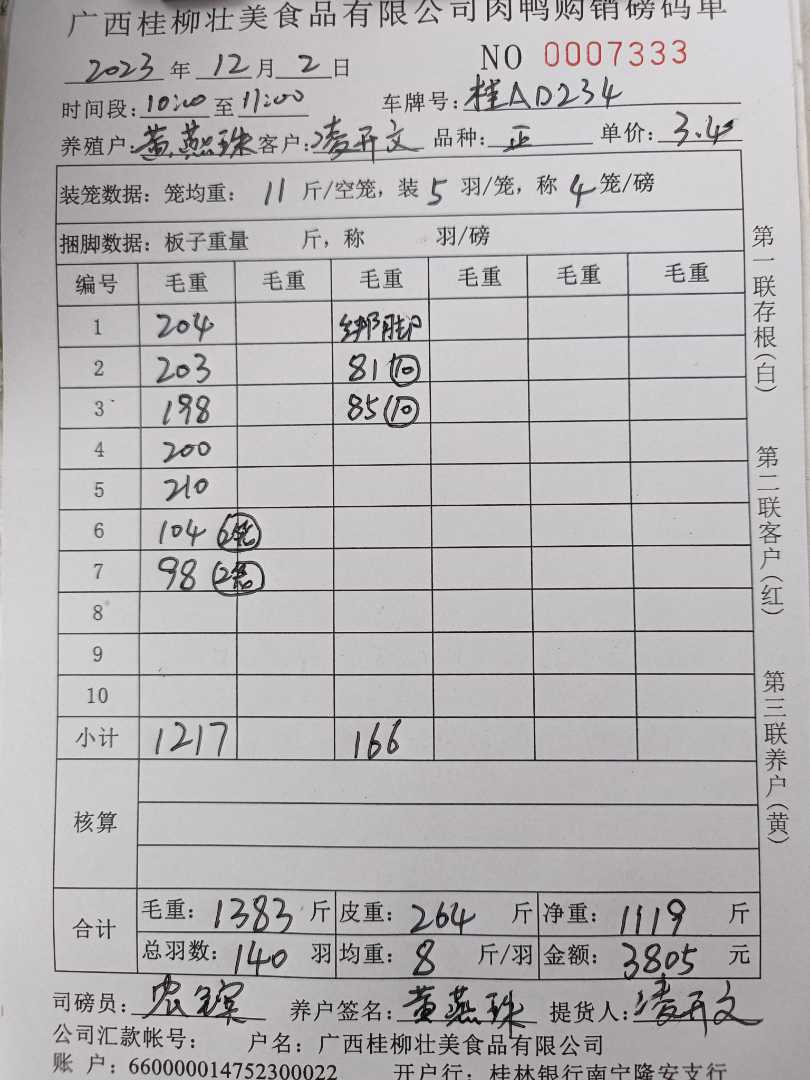 广西桂柳壮美食品有限公司肉鸭购销磅码单
2023 年 12 月 2 日 NO 0007333
时间段: 10:00 至 11:00 车牌号: 桂AD234
养殖户: 黄燕珠 客户: 凌开文 品种: 正 单价: 3.4
装笼数据: 笼均重: 11 斤/空笼, 装 5 羽/笼, 称 4 笼/磅
捆脚数据: 板子重量 斤, 称 羽/磅
编号 毛重 毛重 毛重 毛重 毛重 毛重
1 204
2 203 81 10
3 198 85 10
4 200
5 210
6 104 2笼
7 98 2笼
8
9
10
小计 1217 166
核算
合计 毛重: 1383 斤 皮重: 264 斤 净重: 1119 斤
总羽数: 140 羽 均重: 8 斤/羽 金额: 3805 元
司磅员: 养户签名: 黄燕珠 提货人: 凌开文
公司汇款帐号: 户名: 广西桂柳壮美食品有限公司
账户: 660000014752300022 开户行: 桂林银行南宁隆安支行
第一联存根(白)
第二联客户(红)
第三联养户(黄)